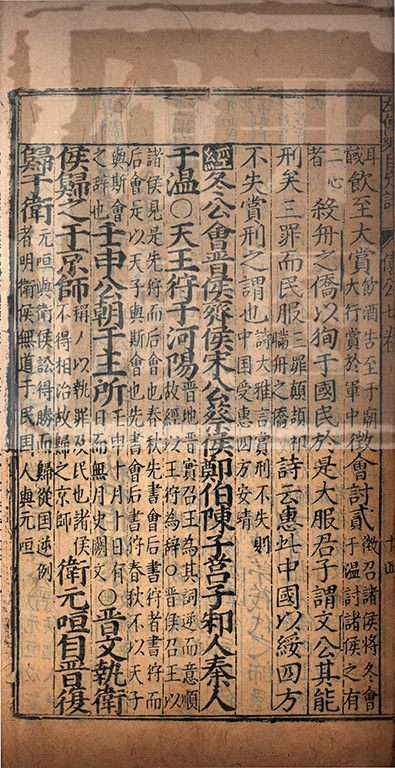 耳馘飲至大賞飲酒告至于廟大行賞於軍中徵會討貳徵召諸侯將冬會于溫討諸侯之有
二心者殺舟之僑以徇于國民於是大服君子謂文公其能
刑矣三罪而民服三罪顛頡祁瞞舟之僑詩云惠此中國以綏四方
不失賞刑之謂也詩大雅言賞刑不失則中国受惠四方安靖
經冬公會晉侯齊侯宋公蔡侯鄭伯陳子莒子邾人秦人
于溫○天王狩于河陽晉地晉實召王為其詞逆而意順故經以王狩為辭○晉侯召王以
諸侯見是先狩而后會也春秋先書會后書狩者狩而后會是以天子與斯會也書會后書狩春秋不以天子
與斯會之辭也壬申公朝于王所壬申十月十日有日而無月史闕文○晉文執衛
侯歸之于京師稱人以執罪及民也諸侯不得相治故歸之京師衛元咺自晉復
歸于衛元咺與衛侯訟得勝而歸從国逆例者明衛侯無道于民国人與元咺